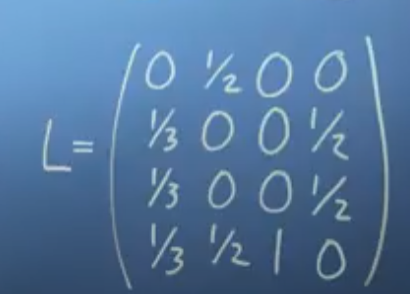 L = ( 0 1/2 0 0
1/3 0 0 1/2
1/3 0 0 1/2
1/3 1/2 1 0 )